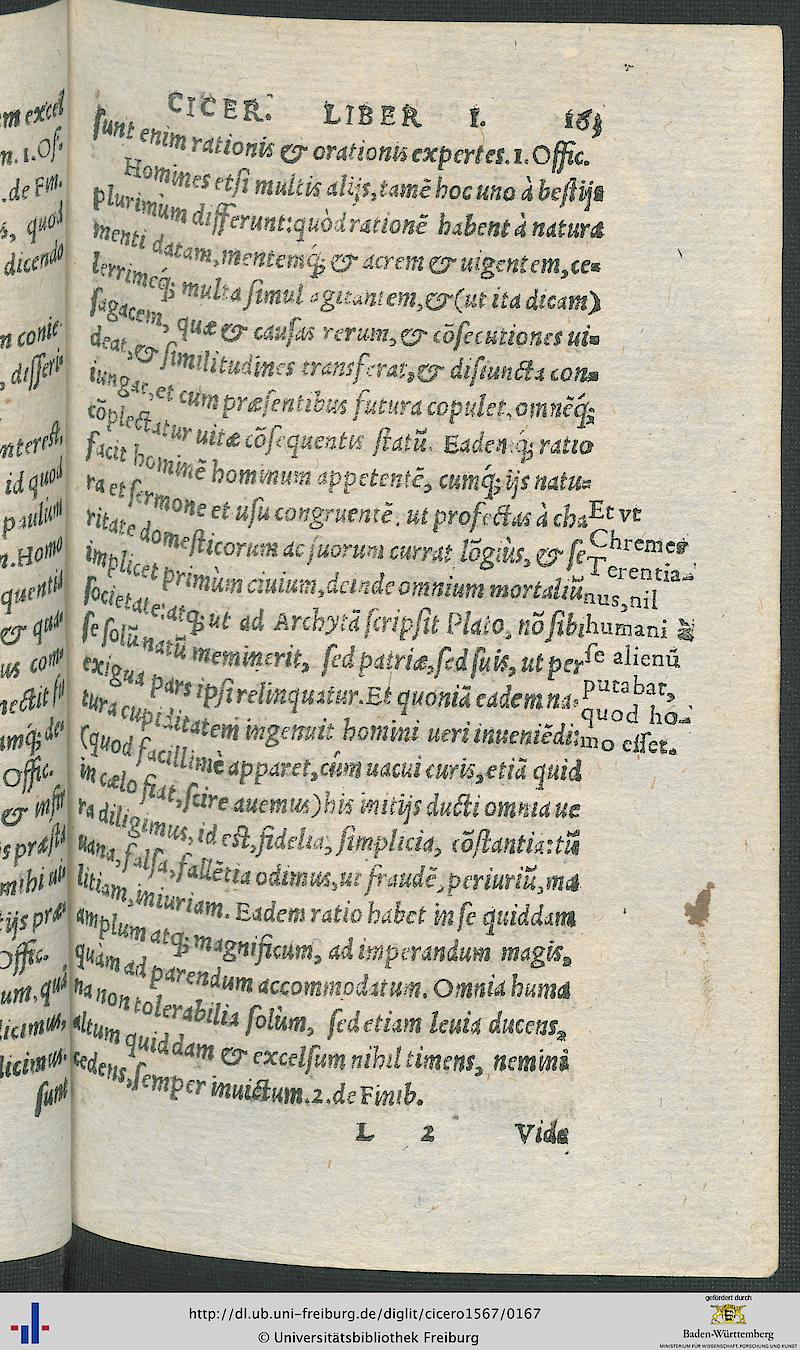 CICER. LIBER I. 163
ſunt enim rationis & orationis expertes. 1. Offic.
Homines etſi multis alijs, tamē hoc uno à beſtijs
plurimùm differunt: quòd rationē habent à natura
menti datam, mentemq́; & acrem & uigentem, ce-
lerrimeq́; multa ſimul agitantem, & (ut ita dicam)
ſagacem, quæ & cauſas rerum, & cōſecutiones ui-
deat, & ſimilitudines transferat, & diſiuncta con-
iungat, et cum præſentibus futura copulet, omnēq́;
cōplectatur uitæ cōſequentis ſtatū. Eademq́; ratio
facit hominē hominum appetentē, cumq́; ijs natu-
ra et ſermone et uſu congruentē. ut profectas à cha
ritate domeſticorum ac ſuorum currat lōgiùs, & ſe
implicet primùm ciuium, deinde omnium mortaliū
ſocietate: atq; ut ad Archytā ſcripſit Plato, nō ſibi
ſe ſolū natū meminerit, ſed patriæ, ſed ſuis, ut per
exigua pars ipſi relinquatur. Et quoniā eadem na-
tura cupiditatem ingenuit homini ueri inueniēdi:
(quod facillimè apparet, cùm uacui curis, etiā quid
in cælo fiat, ſcire auemus) his initijs ducti omnia ue
ra diligimus, id eſt, fidelia, ſimplicia, cōſtantia: tū
uana, falſa, fallētia odimus, ut fraudē, periuriū, ma
litiam, iniuriam. Eadem ratio habet in ſe quiddam
amplum atq; magnificum, ad imperandum magis,
quàm ad parendum accommodatum. Omnia huma
na non tolerabilia ſolùm, ſed etiam leuia ducens,
altum quiddam & excelſum nihil timens, nemini
cedens, ſemper inuictum. 2. de Finib.
L 2 Vide
Et vt
Chremes
Terentia-
nus, nil
humani à
ſe alienū
putabat,
quod ho-
mo eſſet.
em excel
n. 1. Of.
. de Fin.
s, quod
dicendo
n conie
, differi
ntereſt,
id quod
paulùm
n. Homo
quentia
& qua
us com
nectit fu
amq́; de
Offic.
& inſit
s præſta
mihi ui
tijs præ
Offic.
um, quā
dicimus,
licimus.
ſunt
http://dl.ub.uni-freiburg.de/diglit/cicero1567/0167
© Universitätsbibliothek Freiburg
gefördert durch
Baden-Württemberg
MINISTERIUM FÜR WISSENSCHAFT, FORSCHUNG UND KUNST